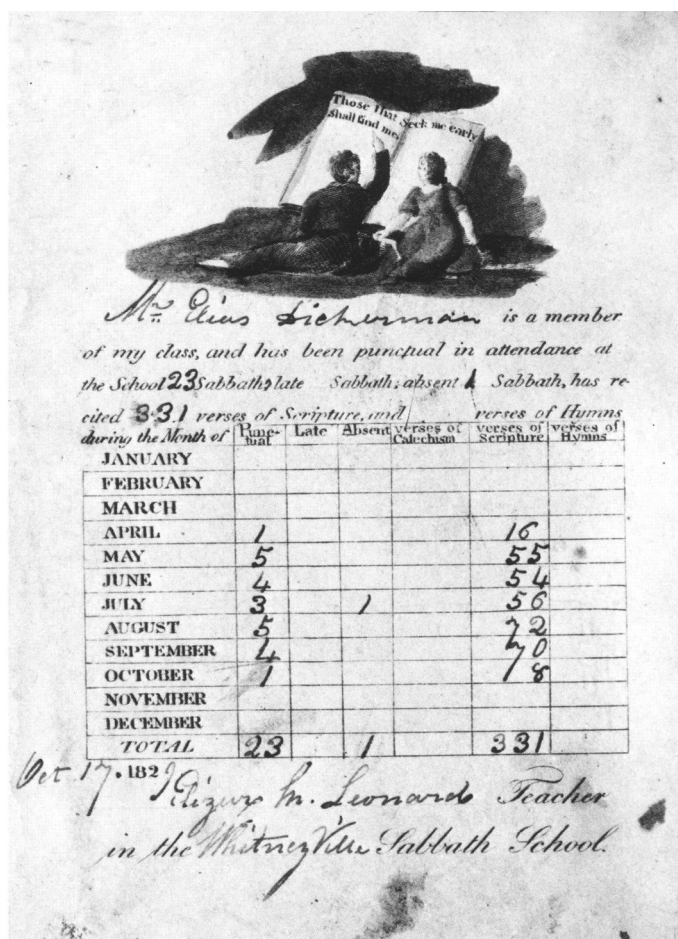 Those That Seek me early
Shall find me.
Mr. Elias Dickerman is a member
of my class, and has been punctual in attendance at
the School 23 Sabbath, late Sabbath, absent 1 Sabbath, has re-
cited 331 verses of Scripture, and verses of Hymns
during the Month of Punc-tual Late Absent verses of Catechism verses of Scripture verses of Hymns
JANUARY
FEBRUARY
MARCH
APRIL 1 16
MAY 5 55
JUNE 4 54
JULY 3 1 56
AUGUST 5 72
SEPTEMBER 4 70
OCTOBER 1 8
NOVEMBER
DECEMBER
TOTAL 23 1 331
Oct 17. 1829
Elizur M. Leonard Teacher
in the WhitneyVille Sabbath School.